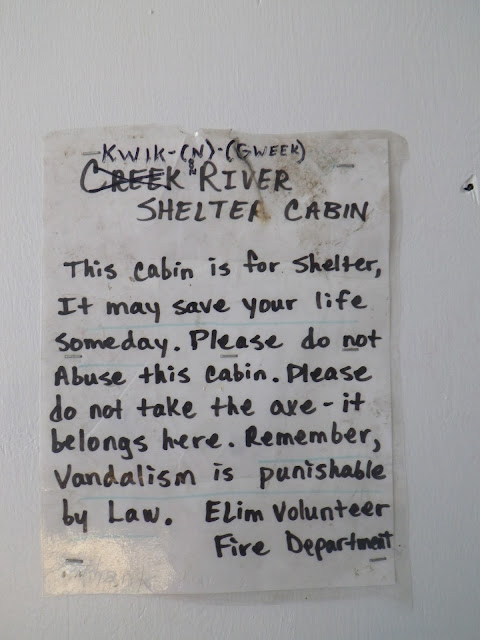 KWIK-(N)-(GWEEK)
CREEK RIVER
SHELTER CABIN
This cabin is for Shelter,
It may save your life
someday. Please do not
Abuse this cabin. Please
do not take the axe - it
belongs here. Remember,
Vandalism is punishable
by Law. Elim Volunteer
Fire Department